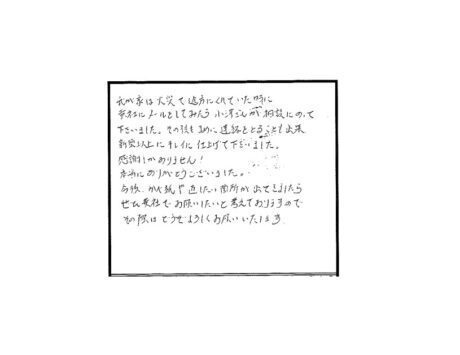 我が家は火災で途方にくれていた時に
貴社にメールをしてみたら小澤さんが相談にのって
下さいました。その後もまめに連絡をとることも出来
新築以上にキレイに仕上げて下さいました。
感謝しかありません！
本当にありがとうございました。
今後、かべ紙や直したい箇所が出てきましたら
ぜひ貴社でお願いしたいと考えておりますので
その際はどうぞよろしくお願いいたします